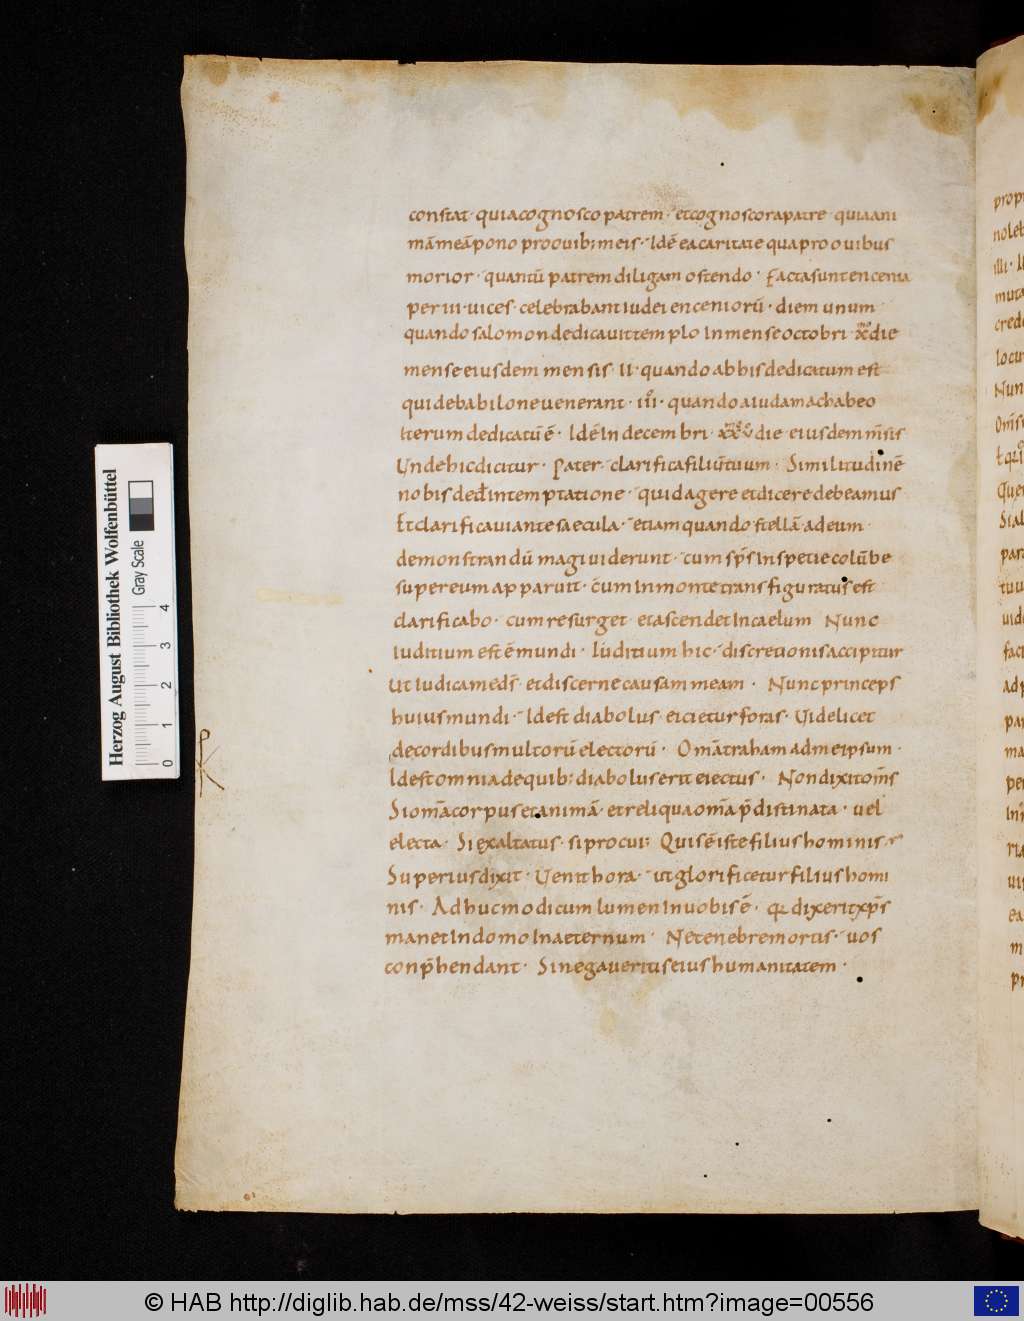 constat · quia cognosco patrem · et cognoscor a patre · quia ani
mā meā pono pro ouib; meis · Idē ea caritate qua pro ouibus
morior · quantū patrem diligam ostendo · Facta sunt encenia
per iii · uices · celebrabant iudei enceniorū · diem unum
quando salomon dedicauit templo In mense octobri die
mense eiusdem mensis · II · quando ab his dedicatum est
qui de babilone uenerant · quando a iuda machabeo
Iterum dedicatū ē · Idē In decembri · die · eiusdem m̄sis
Unde hic dicitur · Pater clarifica filiū tuum · Similitudinē
nobis ded̄ in temptatione · quid agere et dicere debeamus
Et clarificaui ante saecula · etiam quando stellā ad eum
demonstrandū magi uiderunt · cum sp̄s In spetie colūbe
super eum apparuit · cum In monte transfiguratus est
clarificabo · cum resurget et ascendet In caelum Nunc
iuditium est ē mundi · Iuditium hic · discretionis accipitur
Ut Iudica me dš · et discerne causam meam · Nunc princeps
huius mundi · Id est diabolus · eicietur foras · Uidelicet
de cordibus multorū electorū · Omā traham ad me ipsum ·
Id est omnia de quib; diabolus erit eiectus · Non dixit om̄s
Si omā corpus et animā · et reliqua omā p̄distinata · uel
electa · Si exaltatus · si procui; Quis ē iste filius hominis
Superius dixit · Uenit hora · ut glorificetur filius homi
nis · Adhuc modicum lumen In uobis ē · dixerit xp̄s
manet In domo In aeternum · Ne tenebre mortis · uos
conp̄hendant · Si negaueritis eius humanitatem ·
Herzog August Bibliothek Wolfenbüttel
Gray Scale
0 1 2 3 4
© HAB http://diglib.hab.de/mss/42-weiss/start.htm?image=00556